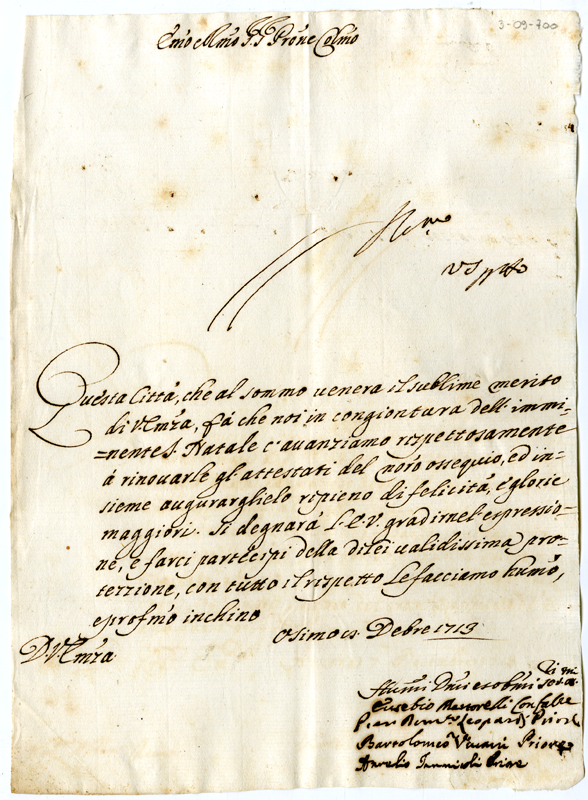 3-09-700
Emo e Rmo Sig Sig Prone Colmo
Questa Città, che al sommo venera il sublime merito
di V. Emza, fá che noi in congiontura dell' immi-
=nente S. Natale c'avanziamo rispettosamente
á rinovarle gl'attestati del nõro ossequio, ed in-
sieme augurarglielo ripieno di felicitá, e glorie
maggiori. Si degnará l'E.V. gradirne l'espressio-
ne, e farci partecipi della di lei validissima pro-
tezzione, con tutto il rispetto Le facciamo humõ,
e profmõ inchino
Osimo Debre 1713
D. V. Emza
Humi Dmi et obmi
Eusebio Confalre
Pier Leopardi Priore
Bartolomeo Priore
Aurelio Priore